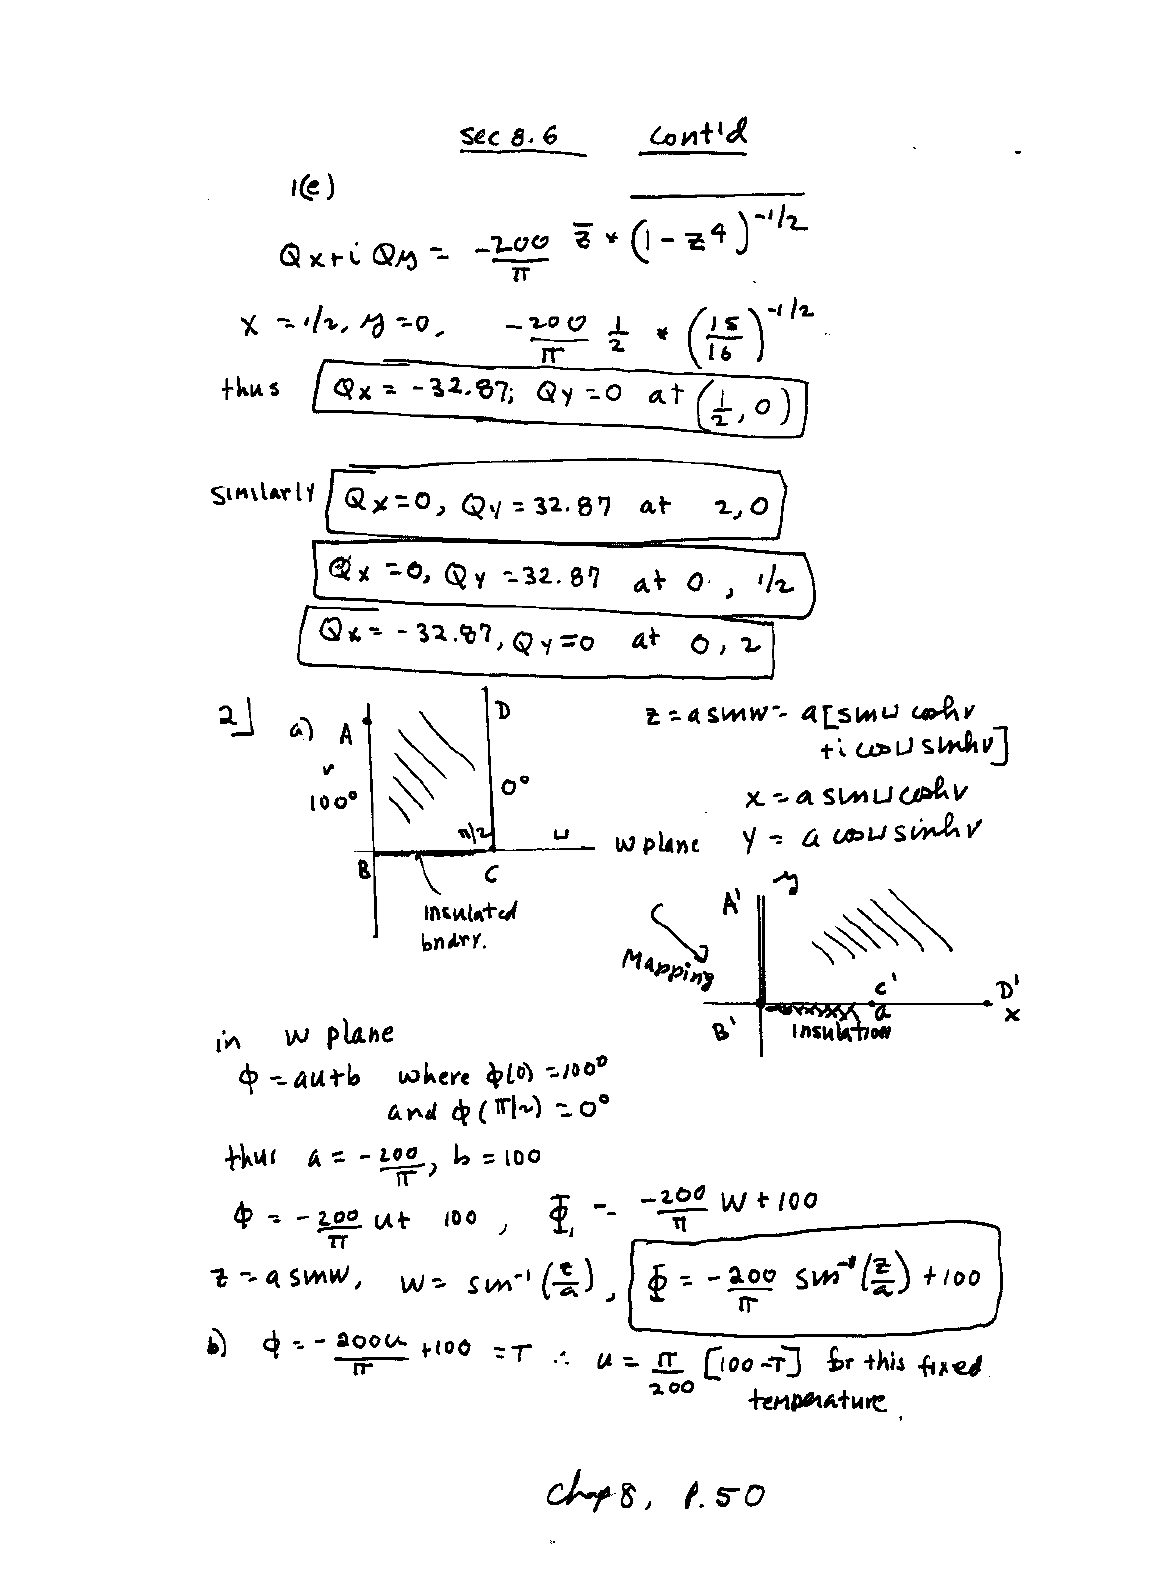 Sec 8.6 Cont'd
1(e)
Qx+i Qy = -200/π z̅ * (1-z⁴)^-1/2
x = 1/2, y=0, -200/π 1/2 * (15/16)^-1/2
thus Qx = -32.87; Qy=0 at (1/2, 0)
Similarly Qx=0, Qy=32.87 at 2,0
Qx=0, Qy=32.87 at 0, 1/2
Qx = -32.87, Qy=0 at 0, 2
2] a) A
v
100°
D
0°
π/2
u
w plane
B
C
insulated
bndry.
z = a sin w = a[sin u cosh v
+i cos u sinh v]
x = a sin u cosh v
y = a cos u sinh v
Mapping
A'
y
C'
D'
B'
a
x
insulation
in w plane
φ = au+b where φ(0) = 100°
and φ(π/2) = 0°
thus a = -200/π, b = 100
φ = -200/π u + 100, Φ = -200/π w + 100
z = a sin w, w = sin⁻¹(z/a), Φ = -200/π sin⁻¹(z/a) + 100
b) φ = -200u/π + 100 = T ∴ u = π/200 [100-T] for this fixed
temperature.
Chap 8, P. 50